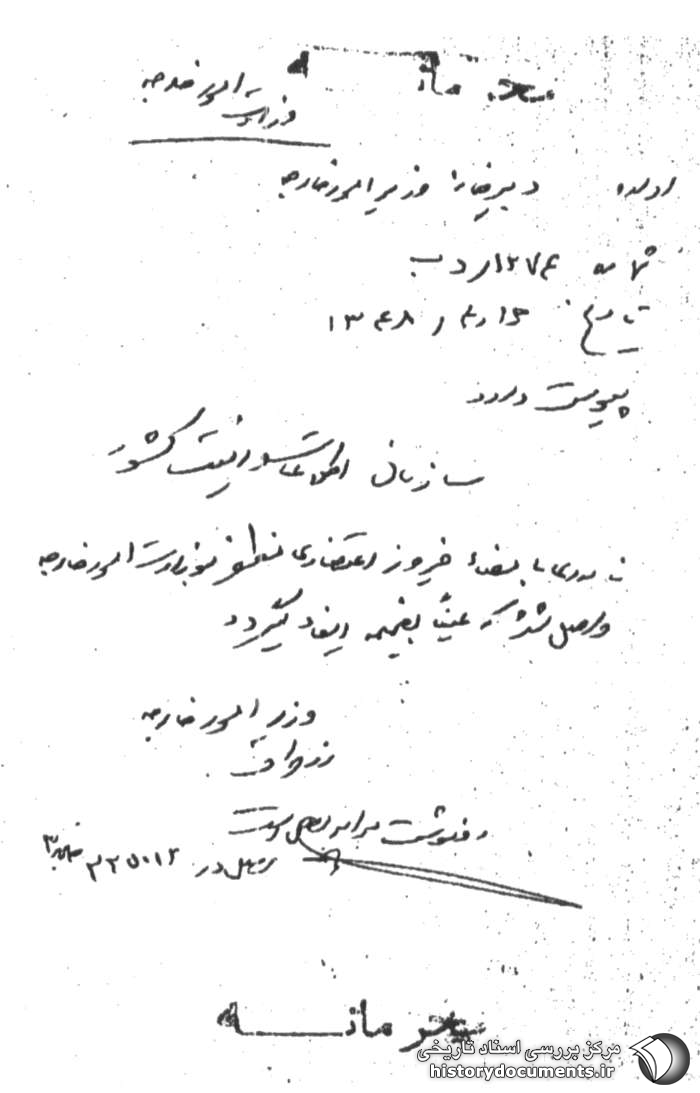 محرمانه
وزارت امور خارجه
اداره دبیرخانه وزیر امور خارجه
شماره ۱۲۷۴/ر د ب
تاریخ ۱۶/۴/۱۳۴۸
پیوست دارد
سازمان اطلاعات و امنیت کشور
نامه‌ای با امضاء فیروز اعتضادی بوزارت امور خارجه
واصل شد که عیناً بضمیمه ایفاد میگردد
وزیر امور خارجه
رونوشت برابر اصل است
اصل در ۳۲۵۰۱۲
محرمانه
مرکز بررسی اسناد تاریخی
historydocuments.ir